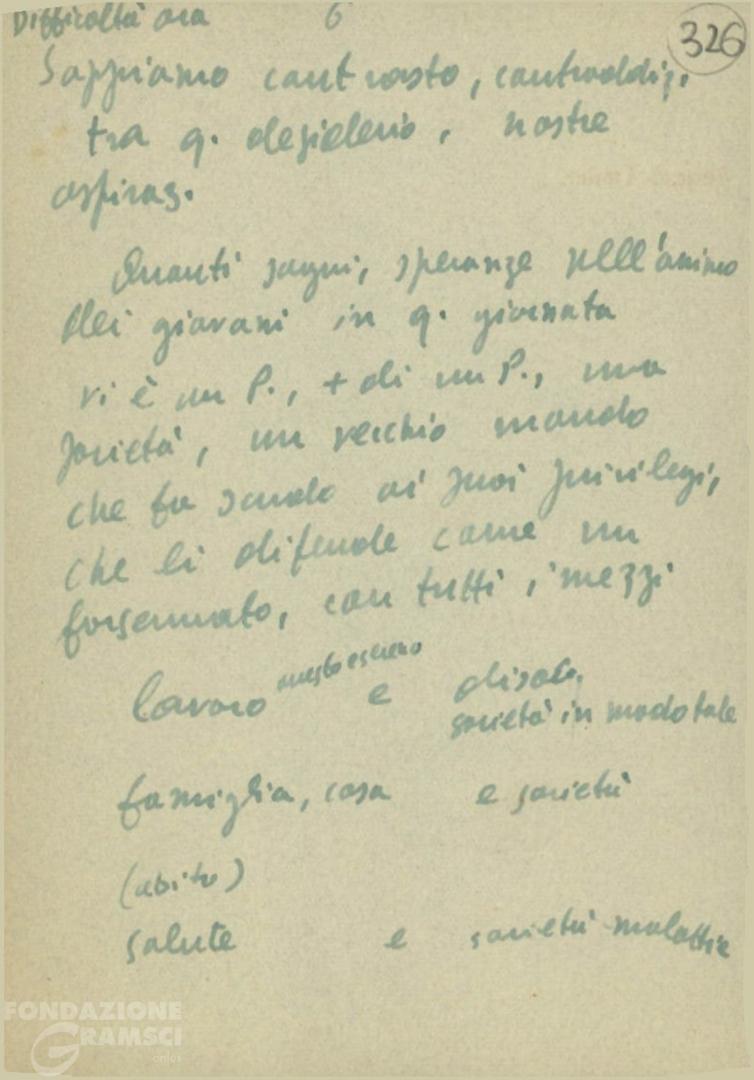 Difficoltà ora 6
326
Sappiamo contrasto, contraddiz.
tra q. desiderio, nostre
aspiraz.
Quanti sogni, speranze nell'animo
dei giovani in q. giornata
vi è un P., + di un P., una
società, un vecchio mondo
che fa scudo ai suoi privilegi,
che li difende come un
forsennato, con tutti i mezzi
lavoro onesto e sereno e disoc.
società in modo tale
famiglia, casa e società
(abito)
salute e società malattie
FONDAZIONE
GRAMSCI
onlus